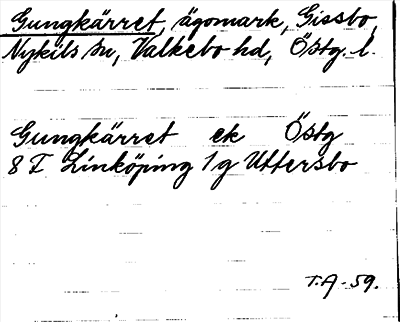 Gungkärret, ägomark, Gissbo,
Nykils sn, Valkebo hd, Östg. l.
Gungkärret ek Östg
8 F Linköping 1 g Uttersbo
T.A-59.